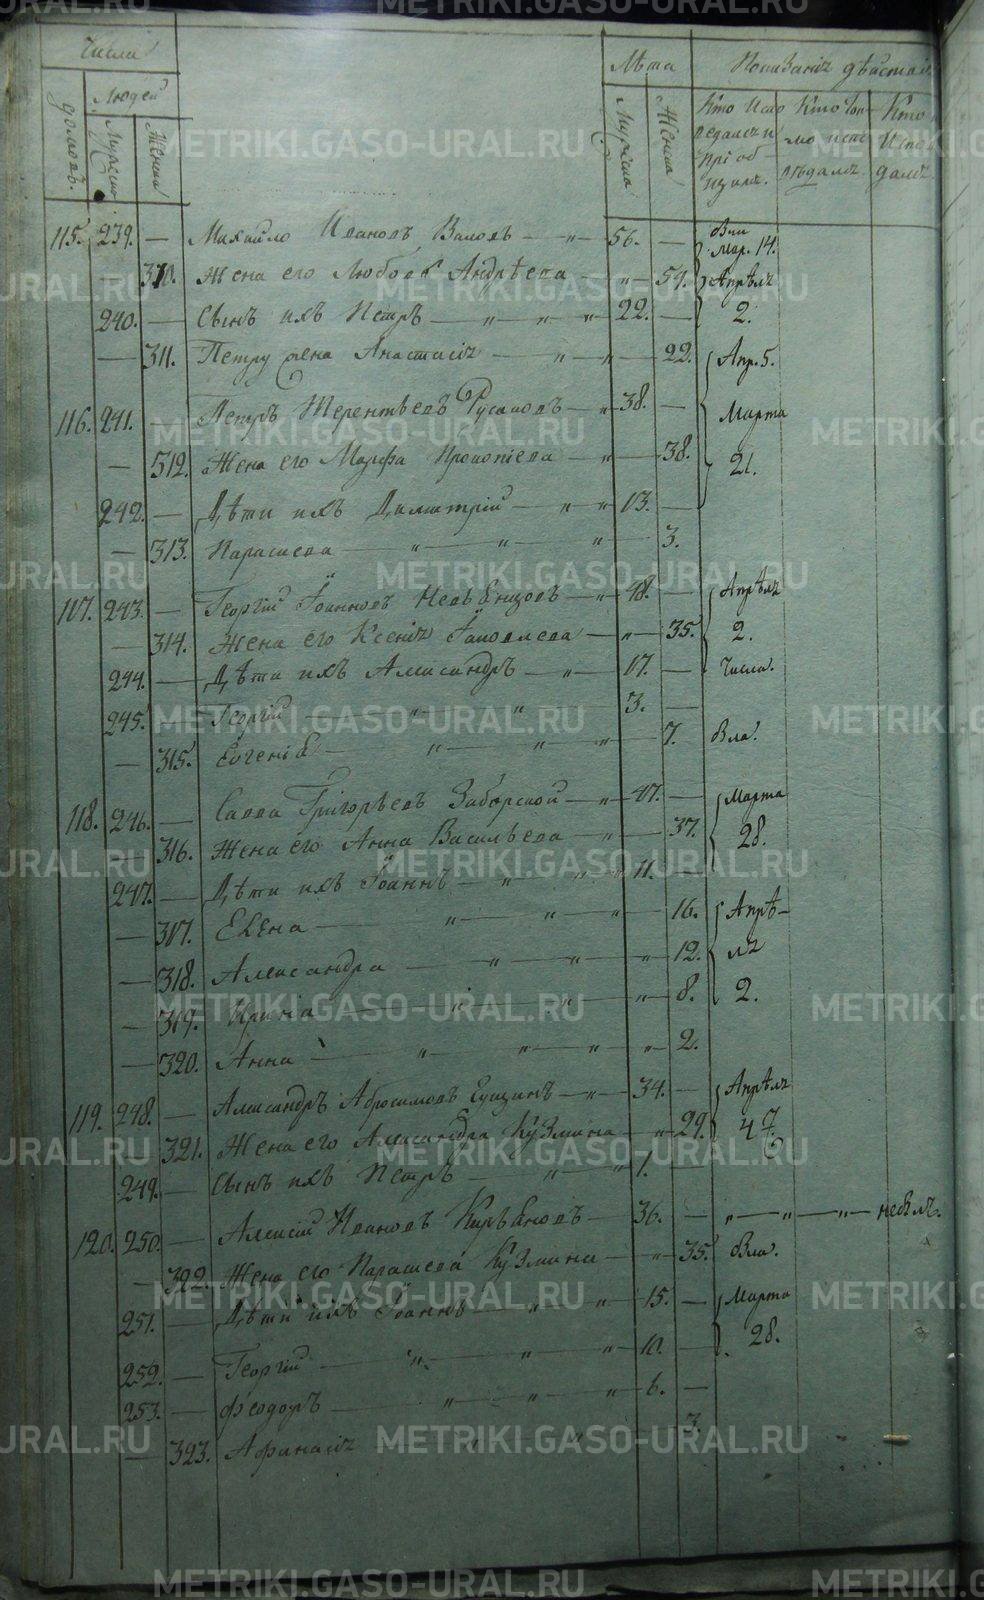 METRIKI.GASO-URAL.RU
Числа
Лѣта
Показаніе дѣйстви
домовъ.
Людей
Мужска
Женска
Мужска
Женска
Кто испо
ведался и
пріоб
щился.
Кто
мо испо
вѣдался
Кто
испо
дался
115. 239. — Михайло Ивановъ — „ — 56. — Мар. 14.
— 310. Жена его Любовь Андрѣева — „ — 59. Апрѣля
240. — Сынъ ихъ Петръ — „ „ „ 22. — 2.
— 311. Петру жена Анастасія — „ — „ — 22. Апр. 5.
116. 241. — Петръ Терентьевъ Русановъ — „ 38. — Марта
— 312. Жена его Марфа Прокопіева — „ — 38. 21.
242. — Дѣти ихъ Димитрій — „ „ 13. —
— 313. Парасѣева — „ — „ — „ — 3.
117. 243. — Георгій Іоанновъ — „ 48. — Апрѣля
— 314. Жена его Ксенія Іаковлева — „ — 35. 2.
244. — Дѣти ихъ Александръ — „ — 17. — Числа.
245. — Георгій „ „ 3. —
— 315. Евгенія — „ — „ — „ — 7.
118. 246. — Савва Григорьевъ Заборской — „ 47. — Марта
— 316. Жена его Анна Васильева — „ — 37. 28.
247. — Дѣти ихъ Іоаннъ — „ — „ „ 11. —
— 317. Елена — „ — „ — „ — 16. Апрѣ-
— 318. Александра — „ — „ — „ 12. ля
— 319. Ирина — „ — „ — „ 8. 2.
— 320. Анна — „ — „ — „ — „ 2.
119. 248. — Александръ Абросимовъ — „ 34. — Апрѣля
— 321. Жена его Александра Кузмина — „ 29. 4
249. — Сынъ ихъ Петръ — „ — „ 1. —
120. 250. — Алексій Ивановъ Кирьяновъ — 36. — „ — „ — „ —
— 322. Жена его Парасѣева Кузмина — „ 35.
251. — Дѣти ихъ Іоаннъ — „ — „ 15. — Марта
252. — Георгій — „ — „ — „ 10. — 28.
253. — Ѳеодоръ — „ — „ — „ 6. —
— 323. Афанасія „ „ 3.